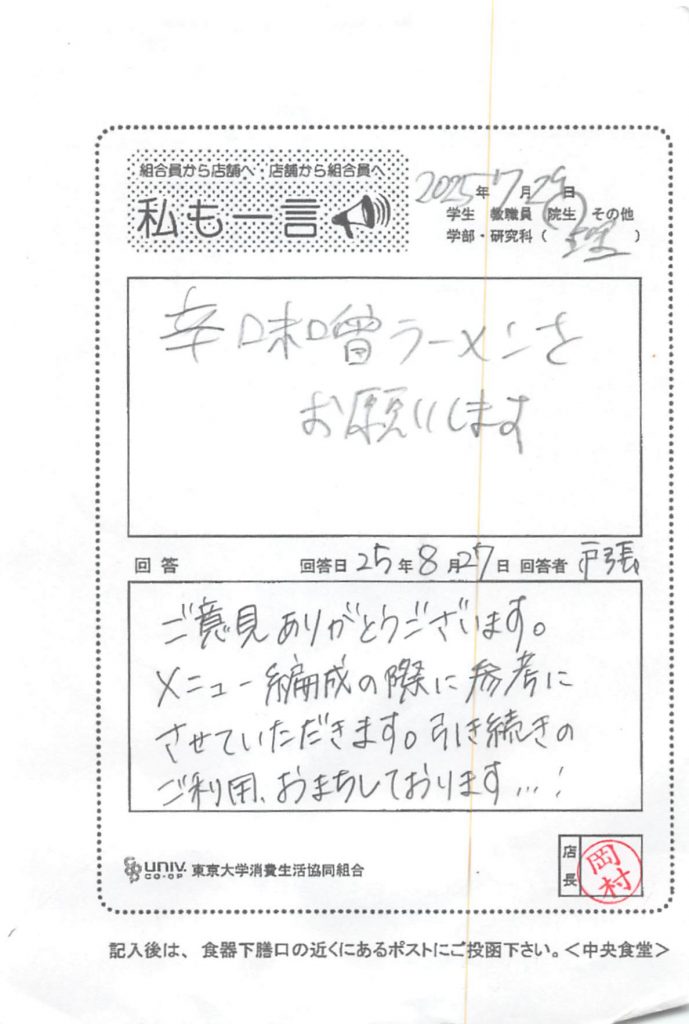 組合員から店舗へ・店舗から組合員へ
私も一言
2025年7月29日
学生 教職員 院生 その他
学部・研究科（理）
辛味噌ラーメンを
お願いします
回答 回答日 25年8月27日 回答者 戸張
ご意見ありがとうございます。
メニュー編成の際に参考に
させていただきます。引き続きの
ご利用、おまちしております…！
UNIV. CO-OP 東京大学消費生活協同組合
店長 岡村
記入後は、食器下膳口の近くにあるポストにご投函下さい。＜中央食堂＞